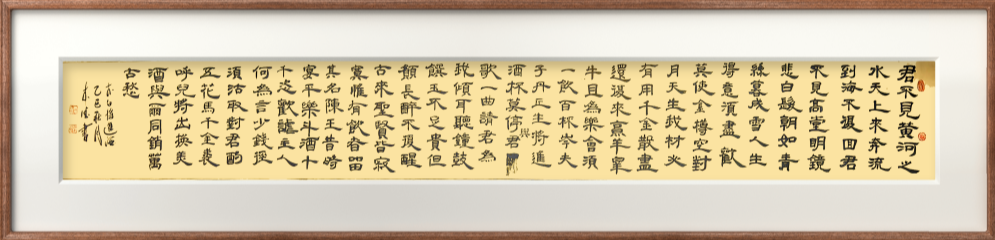 君不見黃河之
水天上來奔流
到海不復回君
不見高堂明鏡
悲白髮朝如青
絲暮成雪人生
得意須盡歡
莫使金樽空對
月天生我材必
有用千金散盡
還復來烹羊宰
牛且為樂會須
一飲百杯岑夫
子丹丘生將進
酒杯莫停與君
歌一曲請君為
我傾耳聽鐘鼓
饌玉不足貴但
願長醉不復醒
古來聖賢皆寂
寞惟有飲者留
其名陳王昔時
宴平樂斗酒十
千恣歡謔主人
何為言少錢徑
須沽取對君酌
五花馬千金裘
呼兒將出換美
酒與爾同銷萬
古愁
李白將進酒
乙巳秋月
書